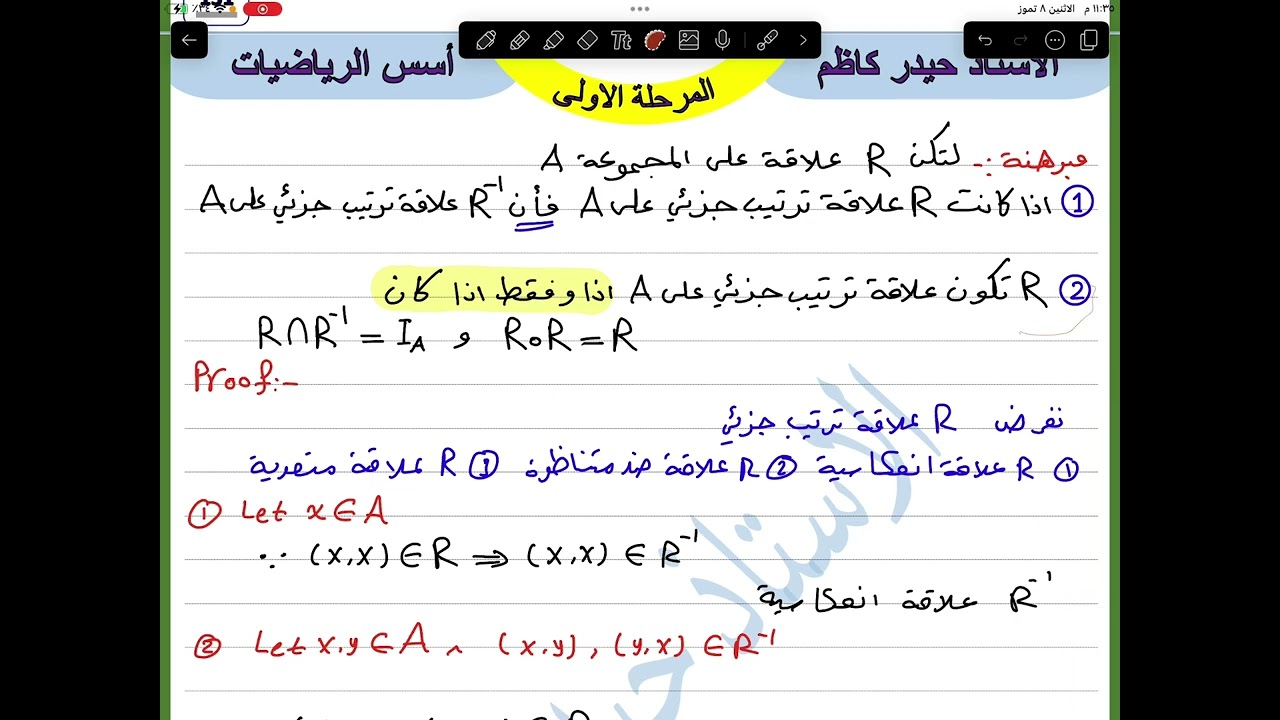 ١١:٣٥ م الاثنين ٨ تموز
٣٤٪
الاستاذ حيدر كاظم
المرحلة الاولى
أسس الرياضيات
مبرهنة :- لتكن R علاقة على المجموعة A
① اذا كانت R علاقة ترتيب جزئي على A فأن R⁻¹ علاقة ترتيب جزئي على A
② R تكون علاقة ترتيب جزئي على A اذا وفقط اذا كان
R∩R⁻¹ = I_A و R∘R = R
Proof:-
نفرض R علاقة ترتيب جزئي
① R علاقة انعكاسية ② R علاقة ضد متناظرة ③ R علاقة متعدية
① Let x∈A
∵ (x,x) ∈ R ⇒ (x,x) ∈ R⁻¹
R⁻¹ علاقة انعكاسية
② Let x,y ∈ A ∧ (x,y), (y,x) ∈ R⁻¹